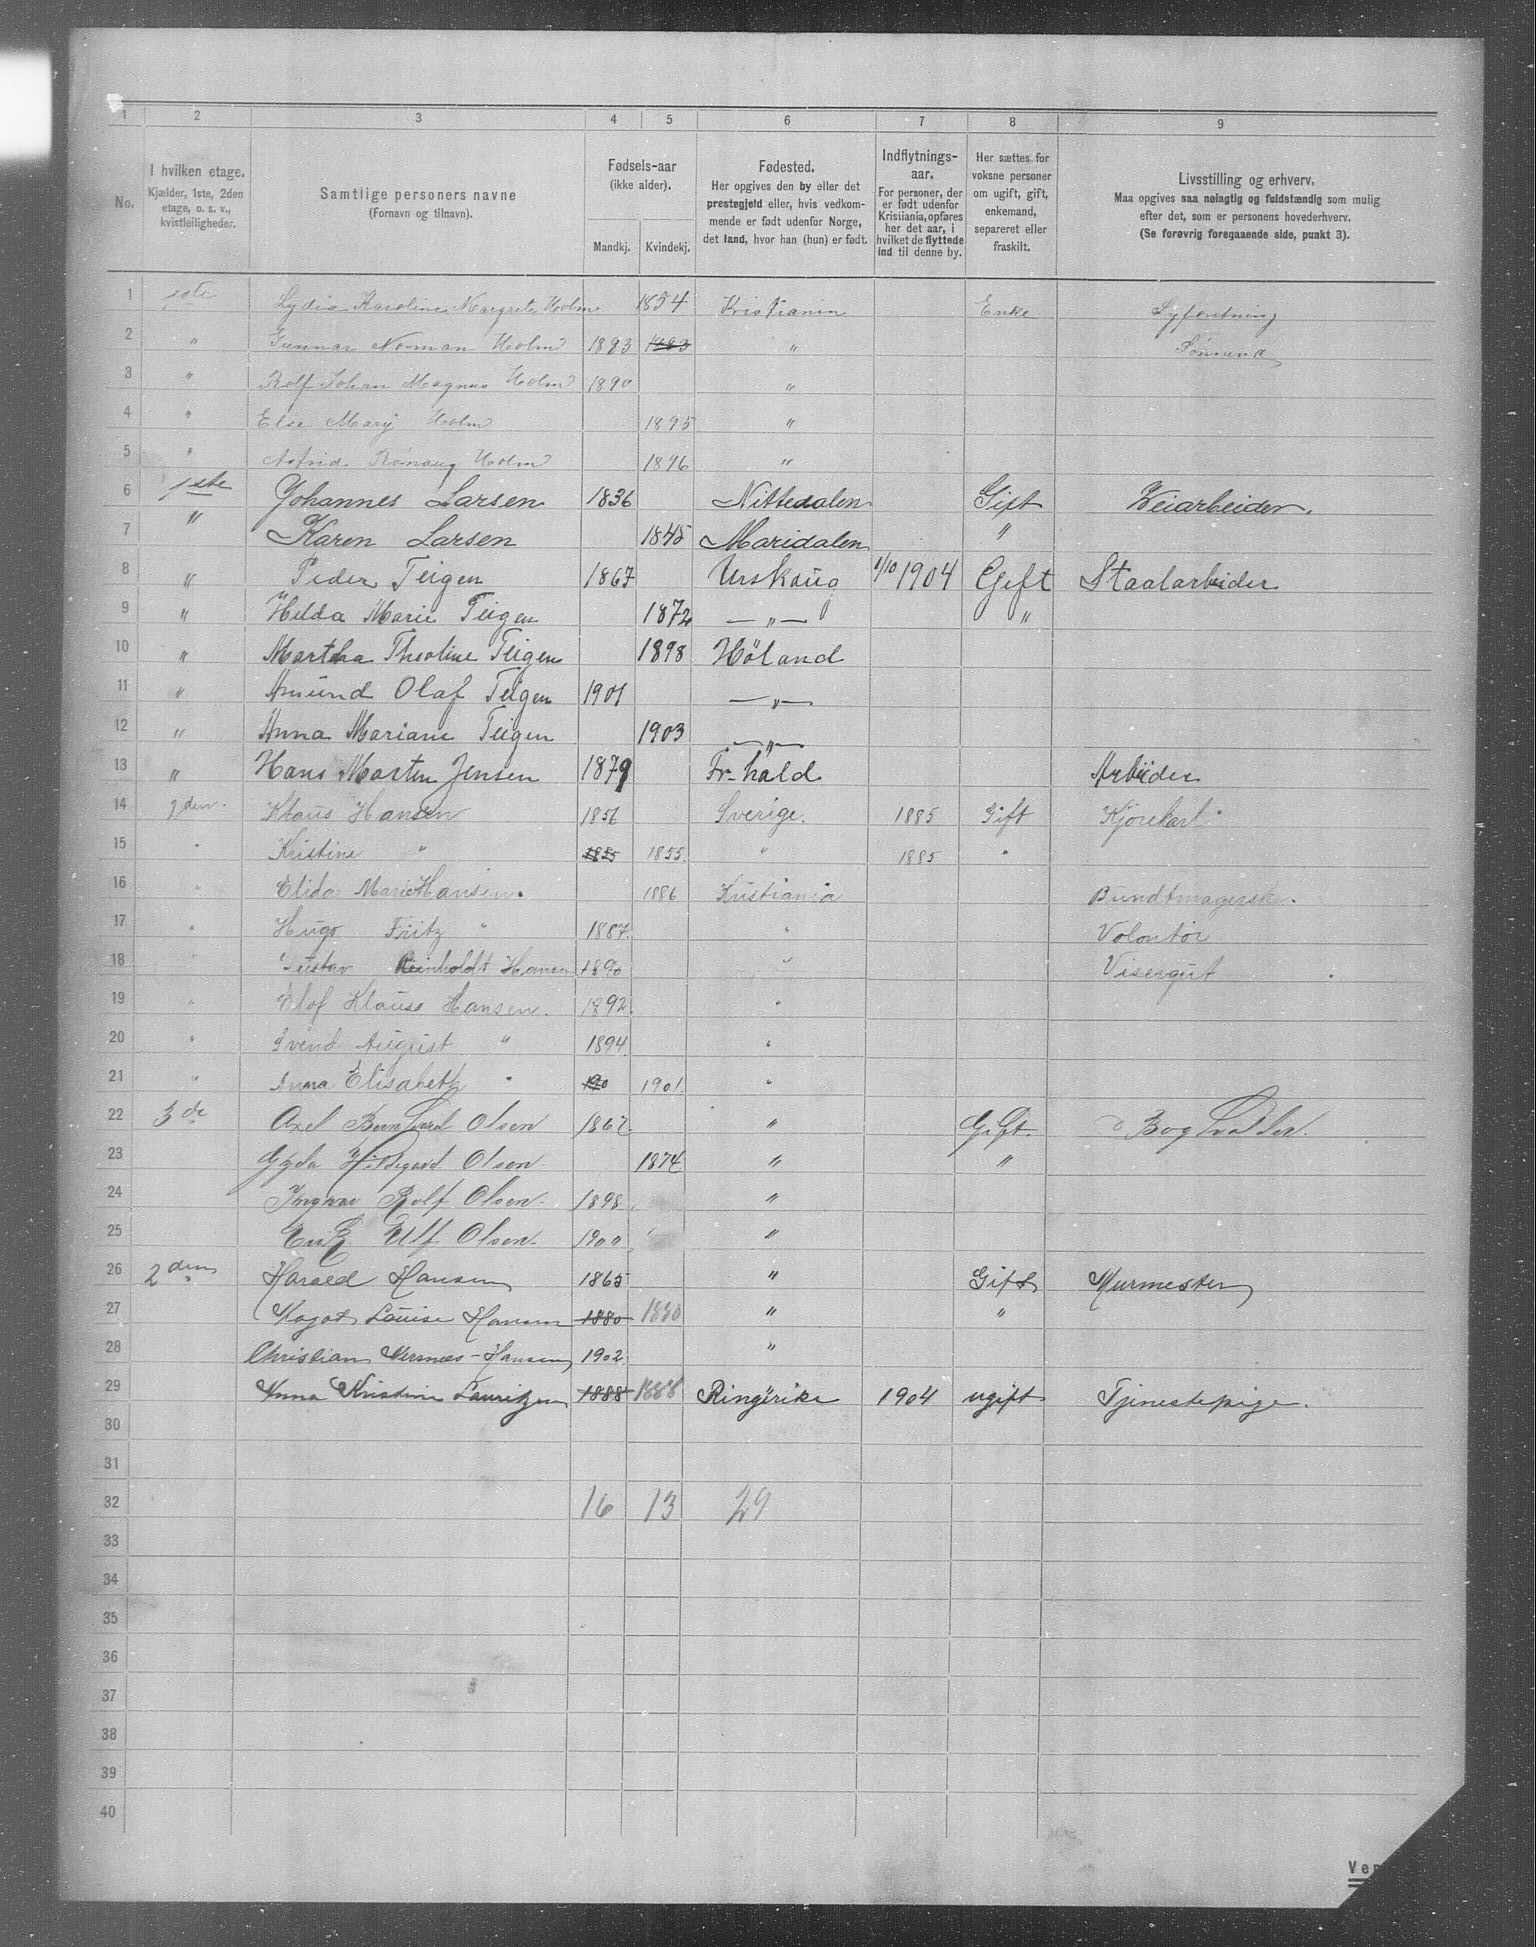 1 2 3 4 5 6 7 8 9
No. I hvilken etage. Kjælder, 1ste, 2den etage, o. s. v., kvistleiligheder. Samtlige personers navne (Fornavn og tilnavn). Fødsels-aar (ikke alder). Mandkj. Kvindekj. Fødested. Her opgives den by eller det prestegjeld eller, hvis vedkommende er født udenfor Norge, det land, hvor han (hun) er født. Indflytnings-aar. For personer, der er født udenfor Kristiania, opføres her det aar, i hvilket de flyttede ind til denne by. Her sættes for voksne personer om ugift, gift, enkemand, separeret eller fraskilt. Livsstilling og erhverv. Maa opgives saa nøiagtig og fuldstændig som mulig efter det, som er personens hovederhverv. (Se forøvrig foregaaende side, punkt 3).
1 1ste Lydia Karoline Margrete Holm 1854 Kristiania Enke Syforretning
2 " Gunnar Norman Holm 1883 1883 " Sømand
3 " Rolf Johan Magnus Holm 1890 "
4 " Else Mary Holm 1895 "
5 " Astrid Rønaug Holm 1896 "
6 1ste Johannes Larsen 1836 Nittedalen Gift Veiarbeider.
7 " Karen Larsen 1845 Maridalen "
8 " Peder Teigen 1867 Urskoug 1/10 1904 Gift Staalarbeider
9 " Hilda Marie Teigen 1872 — " — "
10 " Martha Theoline Teigen 1898 Høland
11 " Amund Olaf Teigen 1901 — " —
12 " Anna Mariane Teigen 1903 — " —
13 " Hans Morten Jensen 1879 Fr-hald Arbeider
14 2den Klaus Hansen 1856 Sverige. 1885 Gift Kjørekarl
15 " Kristine " 1855 1855. " 1885 "
16 " Elida Marie Hansen. 1886 Kristiania Bundtmagerske.
17 " Hugo Fritz " 1887. " Volontør
18 " Gustav Reinholdt Hansen 1890 " Visergut
19 " Olof Klauso Hansen. 1892. "
20 " Svend August " 1894. "
21 " Anna Elisabeth " 190 1901. "
22 3de Axel Bernhard Olsen 1867. " Gift. Bogholder.
23 Gyda Hildegard Olsen 1874 " "
24 Ingvar Rolf Olsen 1898. "
25 Erik Ulf Olsen. 1900 "
26 2den Harald Hansen 1865 " Gift Murmester
27 Magot Louise Hansen 1880 1880 " "
28 Christian Mermæs-Hansen 1902 "
29 Anna Kristine Lauritzen 1888 1888 Ringerike 1904 ugift Tjenestepige.
30
31
32 16 13 29
33
34
35
36
37
38
39
40
Ven